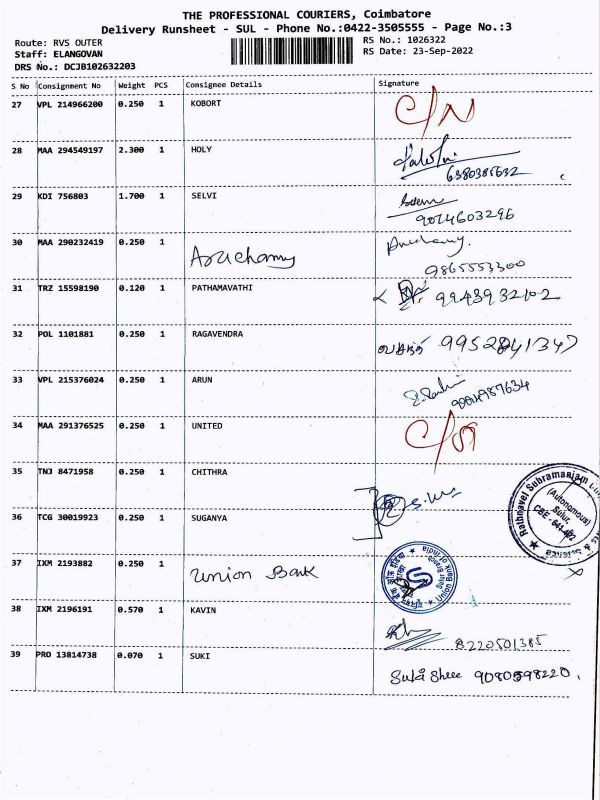 THE PROFESSIONAL COURIERS, Coimbatore
Delivery Runsheet - SUL - Phone No.:0422-3505555 - Page No.:3
Route: RVS OUTER RS No.: 1026322
Staff: ELANGOVAN RS Date: 23-Sep-2022
DRS No.: DCJB102632203
S No Consignment No Weight PCS Consignee Details Signature
27 VPL 214966200 0.250 1 KOBORT C/N
28 MAA 294549197 2.300 1 HOLY
6380385632
29 KDI 756803 1.700 1 SELVI
9024603296
30 MAA 290232419 0.250 1 Aruchamy
9865553300
31 TRZ 15598190 0.120 1 PATHAMAVATHI 9943932102
32 POL 1101881 0.250 1 RAGAVENDRA 9952841347
33 VPL 215376024 0.250 1 ARUN
34 MAA 291376525 0.250 1 UNITED
35 TNJ 8471958 0.250 1 CHITHRA
36 TCG 30019923 0.250 1 SUGANYA
Rathnavel Subramaniam
(Autonomous)
Sulur,
CBE - 641 402
37 IXM 2193882 0.250 1 Union Bank
Union Bank of India
Sulur Branch
38 IXM 2196191 0.570 1 KAVIN
8220501385
39 PRO 13814738 0.070 1 SUKI
Suki Shree 9080598220.